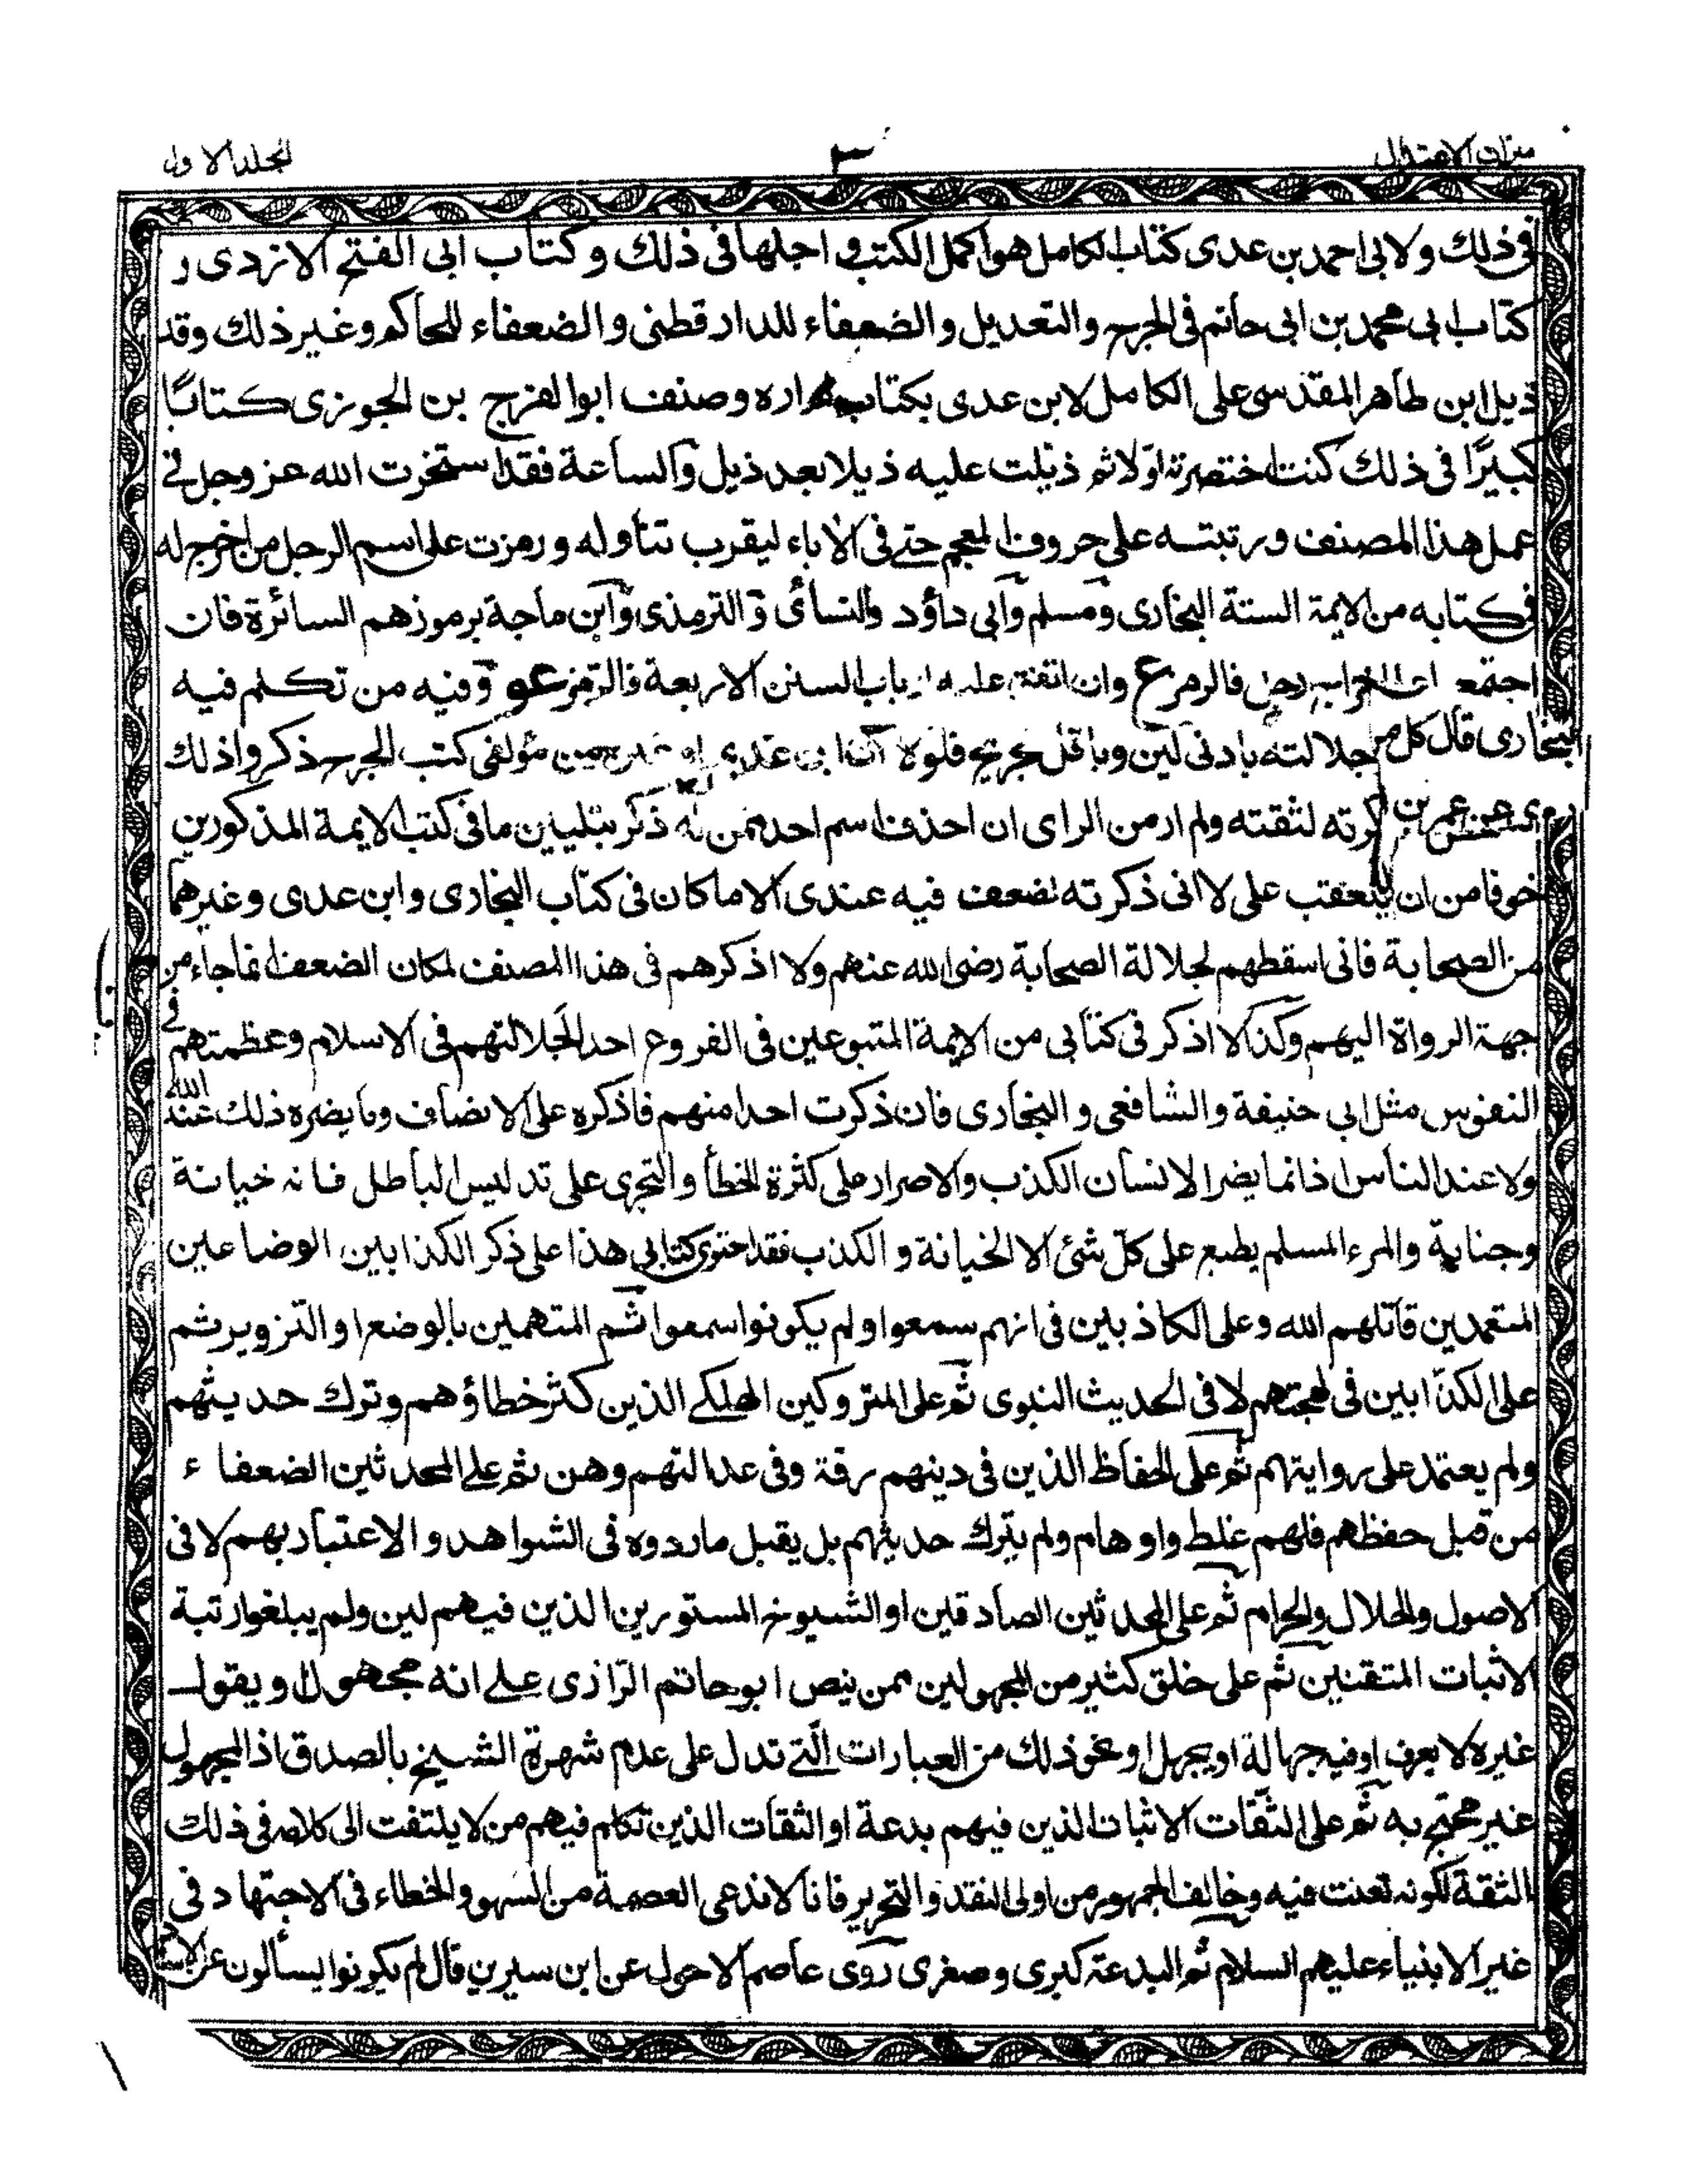 ميزان الاعتدال
٣
المجلد الاول
فى ذلك ولابى احمد بن عدى كتاب الكامل هو اكمل الكتب و اجلها فى ذلك و كتاب ابى الفتح الازدى و
كتاب ابى محمد بن ابى حاتم فى الجرح والتعديل و الضعفاء للدارقطنى و الضعفاء للحاكم وغير ذلك وقد
ذيل ابن طاهر المقدسى على الكامل لابن عدى بكتاب لم اره وصنف ابو الفرج بن الجوزى كتابًا
كبيرًا فى ذلك كنت اختصرته اولا ثم ذيلت عليه ذيلا بعد ذيل والساعة فقد استخرت الله عز وجل فى
عمل هذا المصنف ورتبته على حروف المعجم حتى فى الاباء ليقرب تناوله و رمزت على اسم الرجل من اخرج له
فى كتابه من الايمة الستة البخارى ومسلم وابى داؤد والنسائى و الترمذى وابن ماجة برموزهم السائرة فان
اجتمع رجل فالرمز ع وان اتفق عليه ارباب السنن الاربعة فالرمز عو وفيه من تكلم فيه
جلالته بادنى لين وباقل تجريح فلولا ان ابن عدى او غيره من مؤلفى كتب الجرح ذكروا ذلك
البخارى قال كل من
ذكرته لثقته ولم ار من الراى ان احذف اسم احد ممن له ذكر بتليين ما فى كتب الايمة المذكورين
روى عن عمر بن
خوفا من ان يتعقب على لا انى ذكرته لضعف فيه عندى الا ما كان فى كتاب البخارى و ابن عدى و غيرهما
من الصحابة فانى اسقطهم لجلالة الصحابة رضى الله عنهم ولا اذكرهم فى هذا المصنف لمكان الضعف انما جاء من
جهة الرواة اليهم وكذا لا اذكر فى كتابى من الايمة المتبوعين فى الفروع احدا لجلالتهم فى الاسلام وعظمتهم فى
النفوس مثل ابى حنيفة و الشافعى و البخارى فان ذكرت احدا منهم فاذكره على الانصاف وما يضره ذلك عند الله
ولا عند الناس اذ انما يضر الانسان الكذب والاصرار على كثرة الخطأ و التجرى على تدليس الباطل فانه خيانة
وجناية والمرء المسلم يطبع على كل شئ الا الخيانة و الكذب فقد احتوى كتابى هذا على ذكر الكذابين الوضاعين
المتعمدين قاتلهم الله وعلى الكاذبين فى انهم سمعوا ولم يكونوا سمعوا ثم المتهمين بالوضع او التزوير ثم
على الكذابين فى لهجتهم لا فى الحديث النبوى ثم على المتروكين الهلكے الذين كثر خطاؤهم وترك حديثهم
ولم يعتمد على روايتهم ثم على الحفاظ الذين فى دينهم رقة وفى عدالتهم وهن ثم علے المحدثين الضعفاء
من قبل حفظهم فلهم غلط واوهام ولم يترك حديثهم بل يقبل ما رووه فى الشواهد و الاعتبار بهم لا فى
الاصول والحلال والحرام ثم على المحدثين الصادقين او الشيوخ المستورين الذين فيهم لين ولم يبلغوا رتبة
الاثبات المتقنين ثم على خلق كثير من المجهولين ممن ينص ابو حاتم الرازى علے انه مجهول او يقول
غيره لا يعرف او فيه جهالة او يجهل او نحو ذلك من العبارات التے تدل على عدم شهرة الشيخ بالصدق اذ المجهول
غير محتج به ثم على الثقات الاثبات الذين فيهم بدعة او الثقات الذين تكلم فيهم من لا يلتفت الى كلامه فى ذلك
الثقة لكونه تعنت فيه وخالف الجمهور من اولى النقد و التحرير فانا لا ندعى العصمة من السهو والخطاء فى الاجتهاد فى
غير الانبياء عليهم السلام ثم البدعة كبرى و صغرى روى عاصم الاحول عن ابن سيرين قال لم يكونوا يسألون عن الاسناد